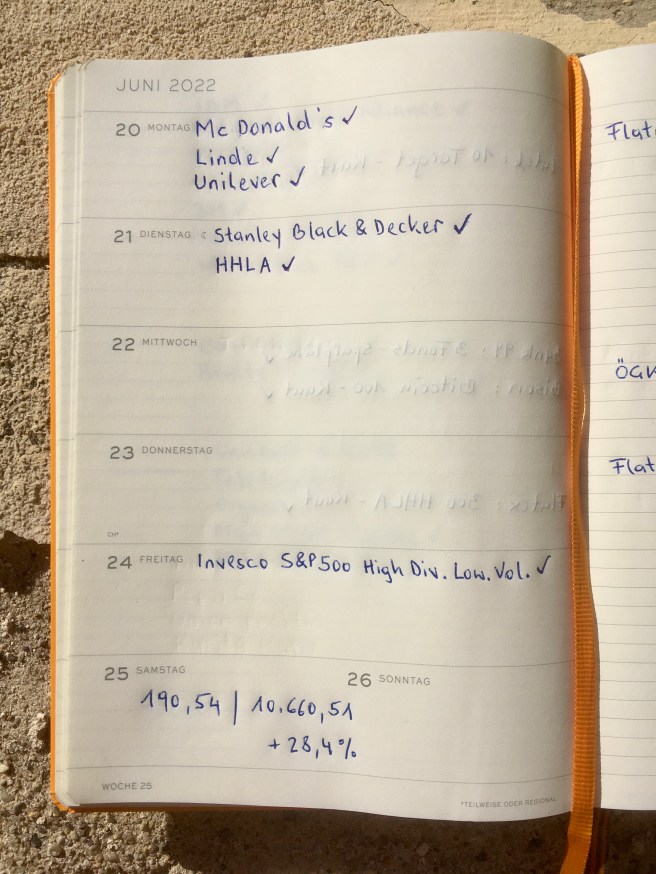 JUNI 2022
20 MONTAG Mc Donald's ✓
Linde ✓
Unilever ✓
21 DIENSTAG ☾ Stanley Black & Decker ✓
HHLA ✓
22 MITTWOCH
23 DONNERSTAG
CH*
24 FREITAG Invesco S&P500 High Div. Low. Vol. ✓
25 SAMSTAG
26 SONNTAG
190,54 | 10.660,51
+28,4%
WOCHE 25
*TEILWEISE ODER REGIONAL
Flat
ÖGK
Flat